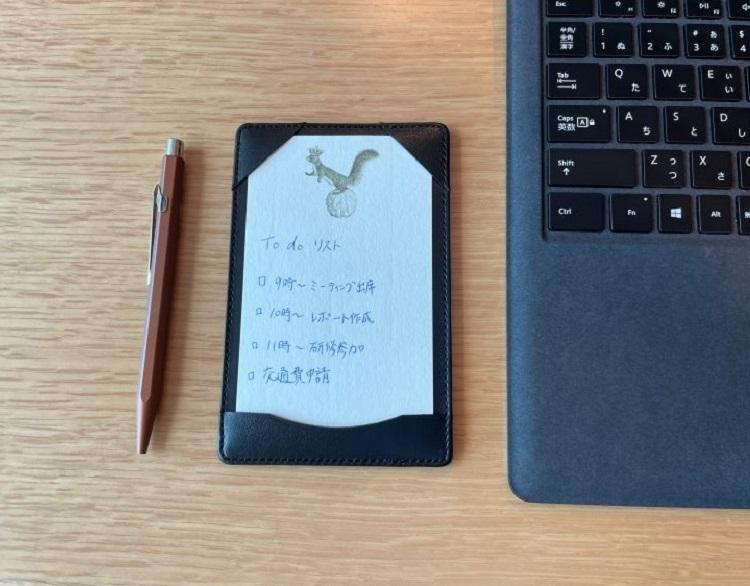 To do リスト
□ 9時〜 ミーティング出席
□ 10時〜 レポート作成
□ 11時〜 研修参加
□ 交通費申請
Esc
半角/
全角
漢字
! 1 ぬ
" 2 ふ
# あ 3 あ
$ 4
Tab
Q た
W て
E い い
Caps
英数
A
A ち
S と
D し
Shift
Z っ つ
X さ
Ctrl
Fn
Alt